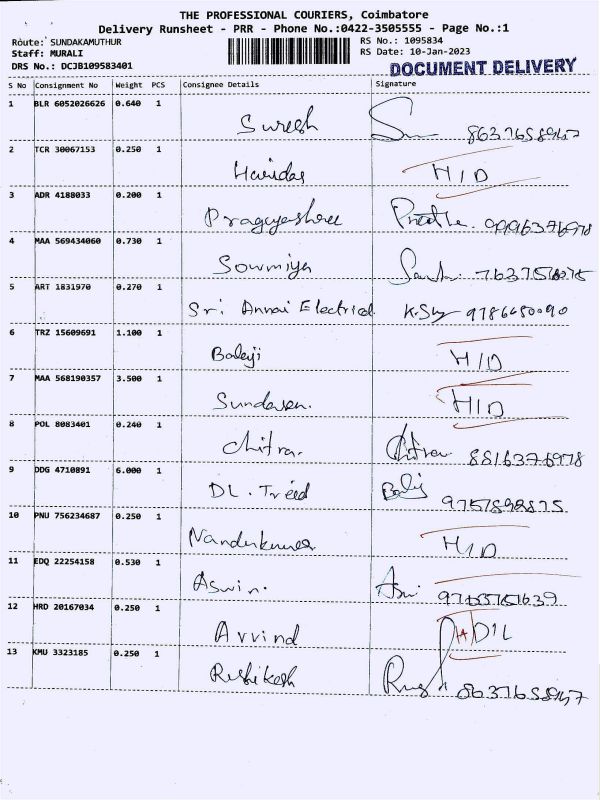 THE PROFESSIONAL COURIERS, Coimbatore
Delivery Runsheet - PRR - Phone No.:0422-3505555 - Page No.:1
Route: SUNDAKAMUTHUR RS No.: 1095834
Staff: MURALI RS Date: 10-Jan-2023
DRS No.: DCJB109583401 DOCUMENT DELIVERY
S No Consignment No Weight PCS Consignee Details Signature
1 BLR 6052026626 0.640 1 Suresh
2 TCR 30067153 0.250 1 Haridas H/D
3 ADR 4188033 0.200 1 9996376978
4 MAA 569434060 0.730 1 Sowmiya
5 ART 1831970 0.270 1 Sri Annai Electrical
6 TRZ 15609691 1.100 1 Balaji H/D
7 MAA 568190357 3.500 1 H/D
8 POL 8083401 0.240 1 Chitra. Chitra 8816376978
9 DDG 4710891 6.000 1 DL. Balaji
10 PNU 756234687 0.250 1 Nandukumar H/D
11 EDQ 22254158 0.530 1 Aswin.
12 HRD 20167034 0.250 1 Arvind
13 KMU 3323185 0.250 1 Rishikesh